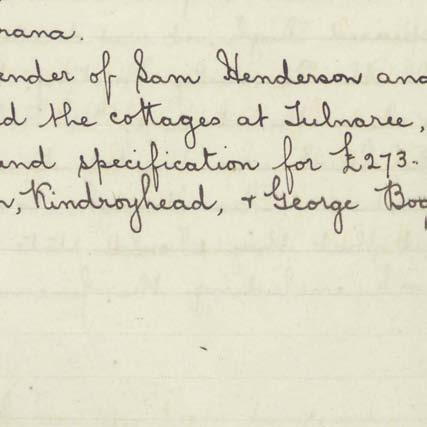 rana.
ender of Sam Henderson and
d the cottages at Tulnaree,
and specification for £273.
n, Kindroyhead, & George Bog